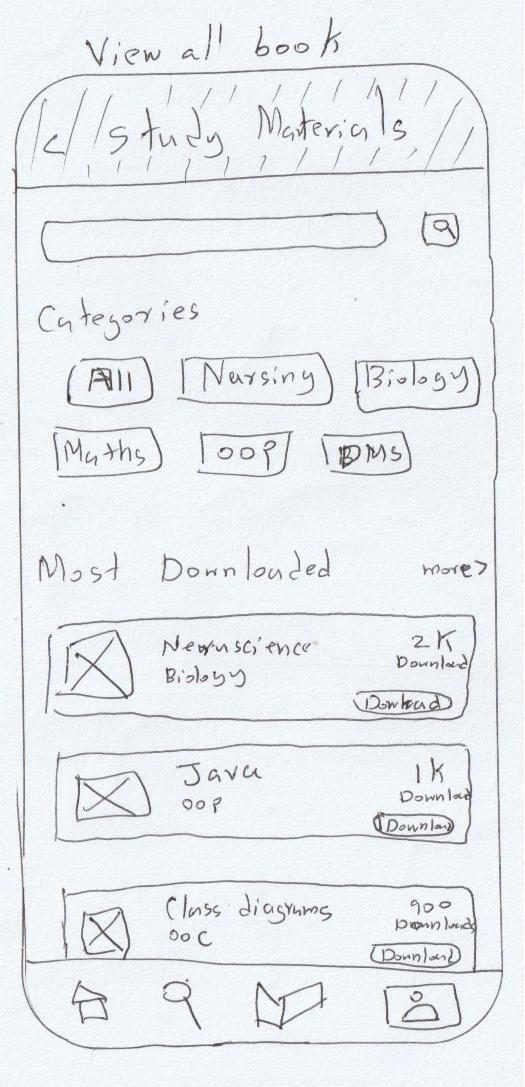 View all book
< Study Materials
Categories
All Nursing Biology
Maths OOP DMS
Most Downloaded more>
Neuruscience 2K
Biology Download
Download
Java 1K
OOP Download
Download
Class diagrams 900
OOC Downloads
Download